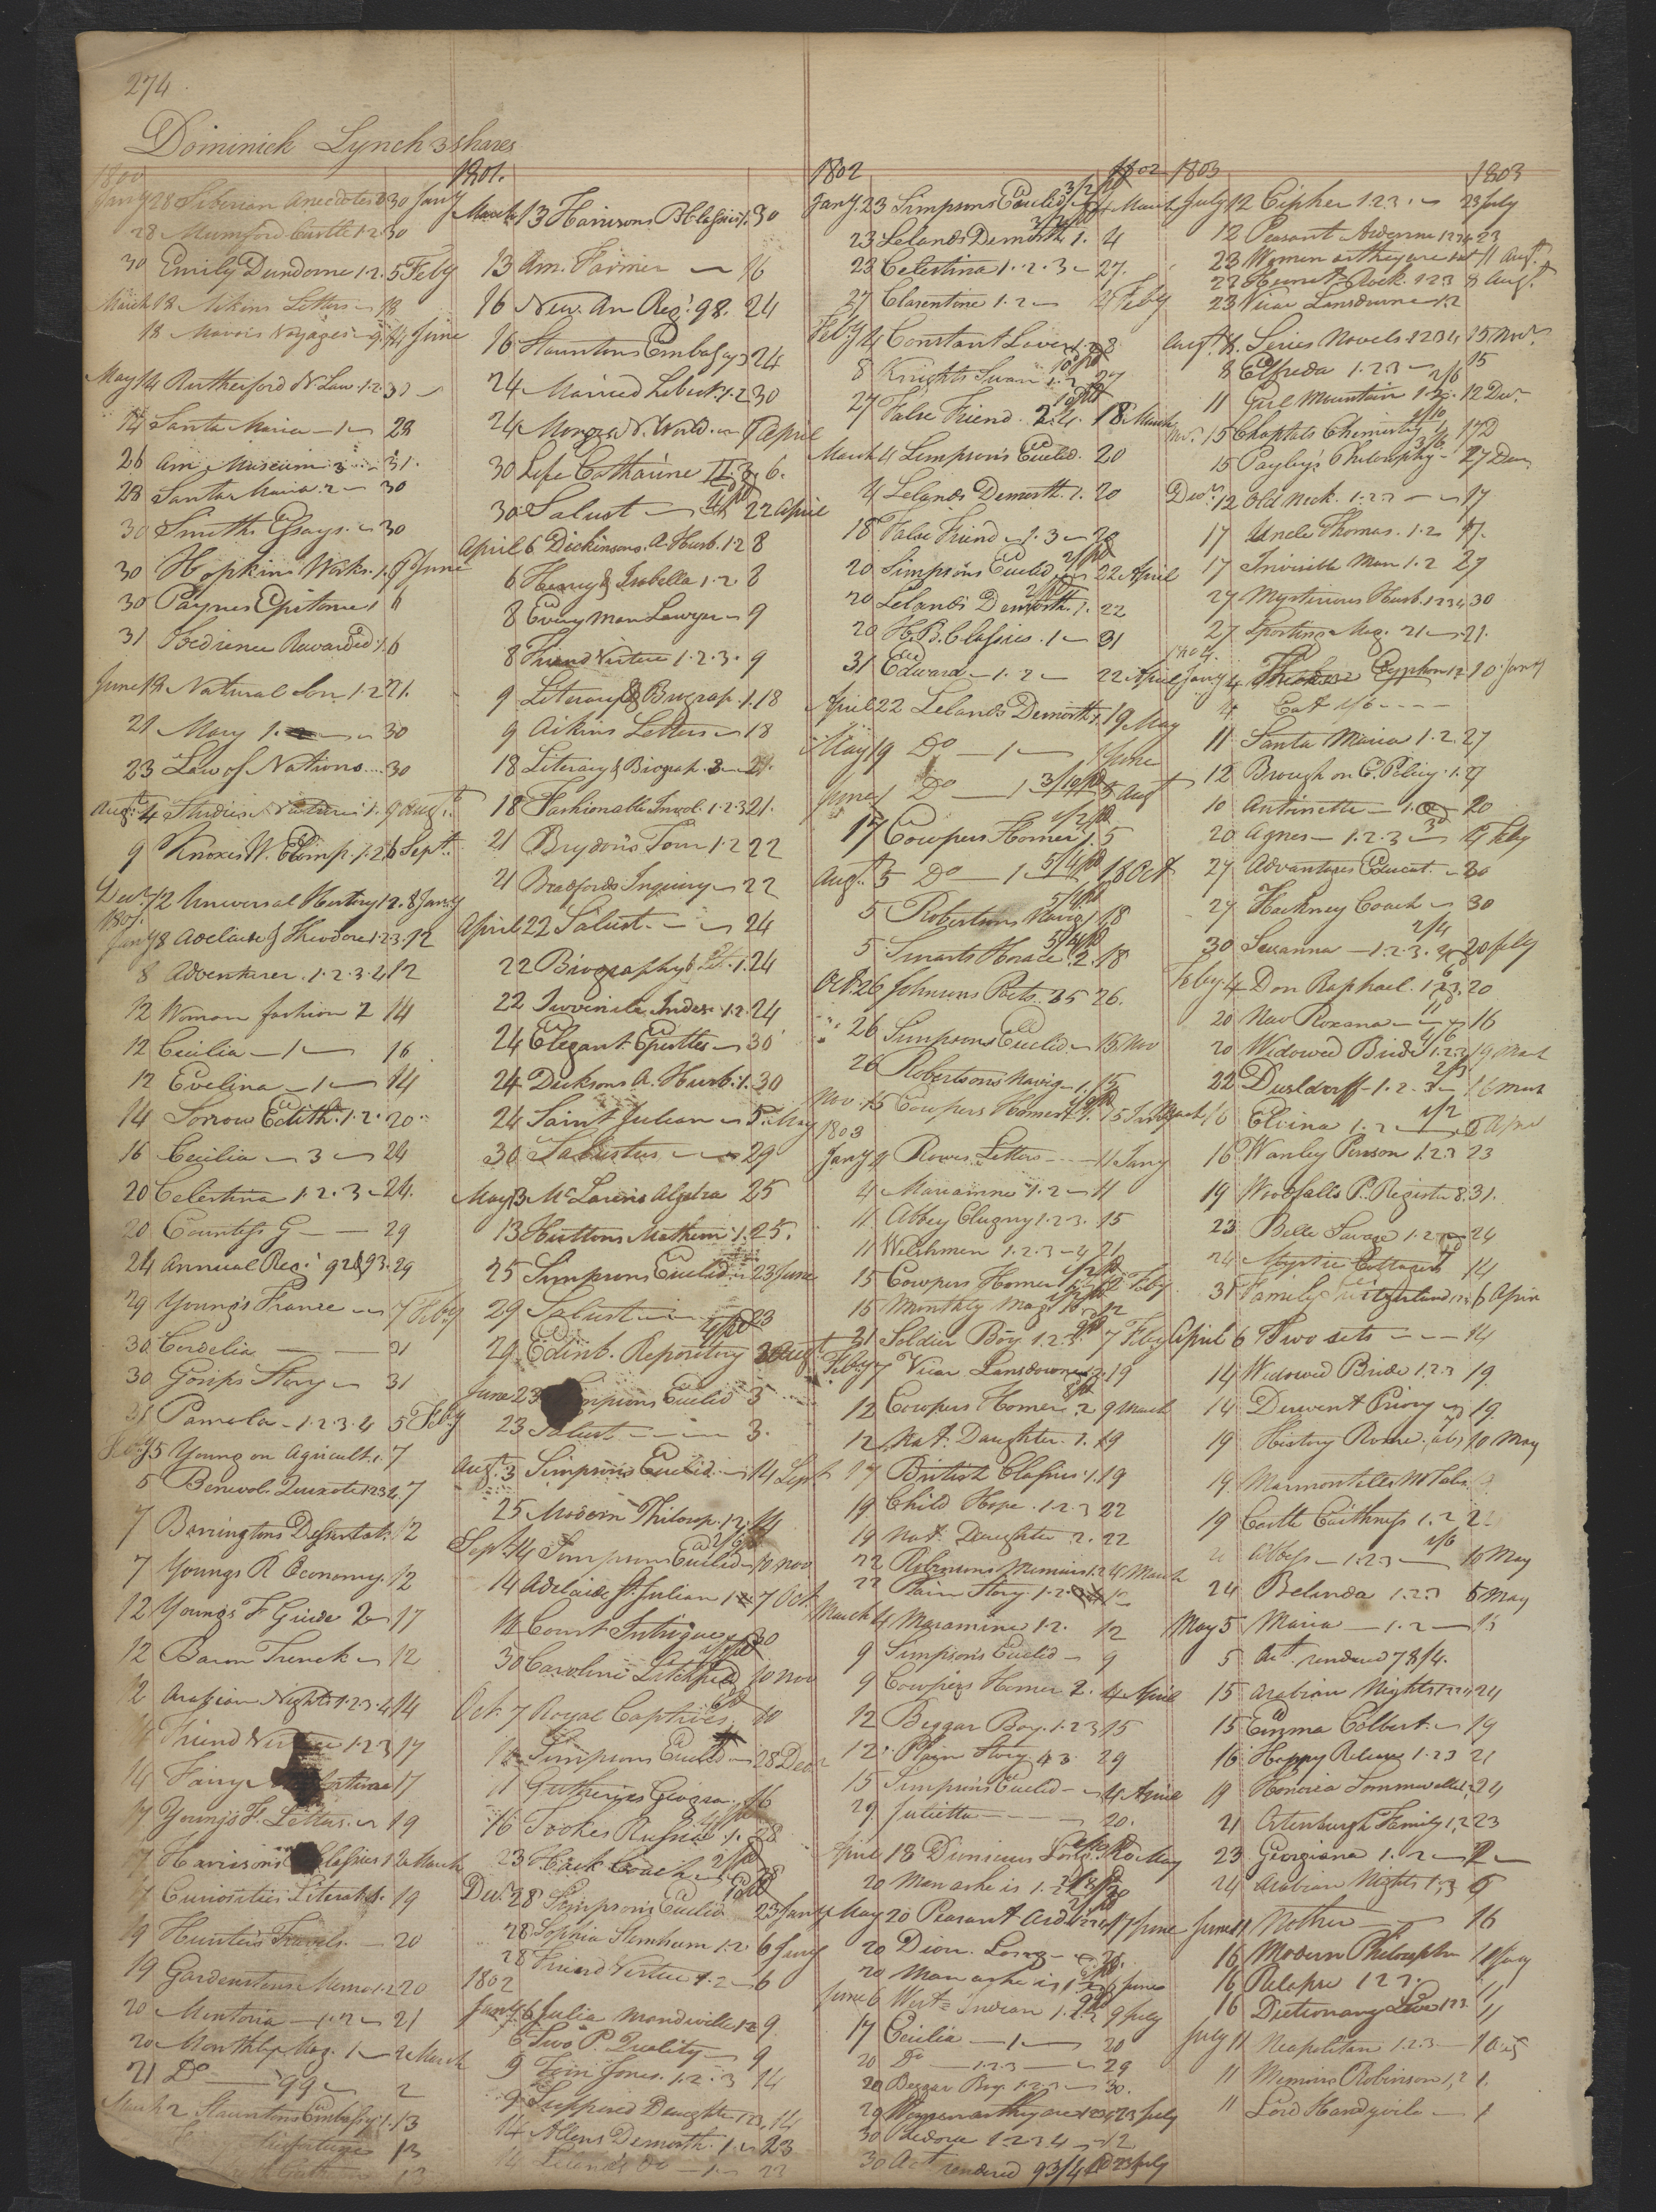 274
Dominick Lynch 3 shares
1800
Jany 28 Siberian Anecdotes 3 30 Jany
28 Mumford Castle 1.2 30
30 Emily Dundorne 1.2. 5 Feby
March 18 Aikins Letters 18
18 Mavors Voyages 9 4 June
May 14 Rutherford N Law 1.2 30
14 Santa Maria 1 28
26 Am. Museum 3 31.
28 Santa Maria 2 30
30 Smith Essays 30
30 Hopkins Works 1. 9 June
30 Paynes Epitome 1 6
31 Obedience Rewarded 1. 6
June 12 Natural Son 1.2 21.
21 Mary 1. 30
23 Law of Nations 30
Augt. 4 Studies Nature 1. 9 Augt.
9 Knoxes W. 1.2 6 Sept.
Decr. 12 Universal History 12. 8 Jany
1801.
Jany 8 Adelaide & Theodore 1.2.3. 12
8 Adventurer. 1.2.3.4 12
12 Woman fashion 2 14
12 Cecilia 1 16
12 Evelina 1 14
14 Sorrows Edith. 1.2. 20
16 Cecilia 3 24
20 Celestina 1.2.3 24.
20 Countess G 29
24 Annual Reg. 92 & 93. 29
29 Young's France 7 Feby
30 Cordelia 31
30 Gosips Story 31
31 Pamela 1.2.3.4 5 Feby
Feby 5 Young on Agricult. 1. 7
5 Benevolt Quixote 1234. 7
7 Barringtons Dessertat. 12
7 Youngs R Economy. 12
12 Youngs F Guide 2 17
12 Baron Trenck 12
12 Arabian Nights 1.2.3.4 14
14 Friend Virtue 1.2.3 17
14 Fairy 17
17 Youngs F. Letters 19
17 Harrisons Classics 1 2 March
17 Curiosities Literat. 19
19 Hunters Travels 20
19 Gardenstones Memo 1.2 20
20 Mentoria 1.2 21
20 Monthly Mag. 1 2 March
21 Do 99 2
March 2 Stauntons Embassy 1. 13
Misfortunes 13
13
1801.
March 13 Harrisons B Classics 1. 30
13 Am. Farmer 16
16 New. An Reg. 98. 24
16 Stauntons Embassy 24
24 Married Libert. 1.2 30
24 Morses N. World 9 April
30 Life Catharine II. 3 6.
30 Salust 22 April
April 6 Dickinsons. A. Husb. 1.2 8
6 Henry & Isabella 1.2. 8
8 Every Man Lawyer 9
8 Friend Virtue 1.2.3. 9
9 Literary & Biograp. 1. 18
9 Aikins Letters 18
18 Literary & Biograp. 2 21.
18 Fashionable Invol. 1.2.3 21.
21 Brydons Tour 1.2 22
21 Bradfords Inquiry 22
April 22 Salust. 24
22 Biography & Lit. 1. 24
22 Juvenile Index 1.2. 24
24 Elegant Epistles 30
24 Dicksons A. Husb. 1. 30
24 Saint Julian 5 May
30 Salustus 29
May 13 McLarens Algebra 25
13 Huttons Mathem 1. 25.
25 Simpsons Euclid 23 June
29 Salust 23
29 Edinb. Repository Augt.
June 23 Simpsons Euclid 3
23 Salust 3.
Augt. 3 Simpsons Euclid 14 Sept.
25 Modern Philosop. 1.2. 14
Sept. 14 Simpsons Euclid 10 Nov
14 Adelaide St. Julian 1 7 Oct
14 Court Intrigue 30
30 Caroline Litchfield 10 Nov
Oct. 7 Royal Captives 10
10 Simpsons Euclid 28 Decr
11 Guthries Geogra. 16
16 Tookes Russia 1. 28
23 Hack Coach 28
Decr. 28 Simpson's Euclid 23 Jany
28 Sophia Sternheim 1.2 6 Jany
28 Friend Virtue 1.2 6
1802
Jany 6 Julia Mandeville 1.2 9
6 Two P. Quality 9
9 Tom Jones. 1.2.3 14
9 Supposed Daughter 1 2 3. 14
14 Allens Demosth. 1. 23
14 Lelands Do 1. 23
1802 1802
Jany 23 Simpsons Euclid 3/2 pd 4 March
23 Lelands Demosth. 1. 4
23 Celestina 1.2.3 27.
27 Clarentine 1.2 4 Feby
Feby 4 Constant Lover 1.2 8
8 Knights Swan 1.2 27
27 False Friend. 2.4. 18 March
March 4 Simpson's Euclid. 20
4 Lelands Demosth. 1. 20
18 False Friend 1.3 20
20 Simpsons Euclid 22 April
20 Lelands Demosth. 1. 22
20 H. B. Classics. 1 31
31 Edward 1.2 22 April
April 22 Lelands Demosth. 1. 19 May
May 19 Do 1 1 June
June 1 Do 1 3/10 pd 5 Augt
17 Cowpers Homer 1. 5
Augt. 5 Do 1 5/4 pd 18 Oct
5 Robertsons Navig. 18
5 Smarts Horace. 2. 18
Oct. 26 Johnsons Poets. 25 26.
26 Simpsons Euclid 15 Nov
26 Robertsons Navig. 1. 15
Nov. 15 Cowpers Homer 1. 15
1803
Jany 4 Rowes Letters 11 Jany
4 Mariamne 1.2 11
11 Abbey Clugny 1.2.3. 15
11 Welshmen 1.2.3.4 21
15 Cowpers Homer 12 Feby
15 Monthly Mag. 12
21 Soldier Boy 1.2.3 7 Feby
Feby 7 Vicar Lansdowne 1.2. 19
12 Cowpers Homer 2 9 March
12 Nat. Daughter. 1. 19
17 British Classics 1. 19
19 Child Hope. 1.2.3 22
19 Nat. Daughter 2. 22
22 Robinsons Memoirs 1.2 4 March
22 Plain Story 1.2
March 4 Maramine 1.2. 12
9 Simpsons Euclid 9
9 Cowpers Homer 2. 4 April
12 Beggar Boy. 1.2.3 15
12 Plain Story 4 3 29
15 Simpson's Euclid 4 April
29 Julietta 20.
April 18 Dionicius Long. 20 May
20 Man as he is 1.2
May 20 Peasant Ard 1234 17 June
20 Dion. Long
20 Man as he is 1.2 6 June
June 6 West Indian 1.2 9 July
17 Cecilia 1 20
20 Do 1.2.3 29
20 Beggar Boy 1.2.3 30.
29 Women as they are 1234 23 July
30 Fedora 1.2.3.4 12
30 Act rendered 93/4 pd 23 July
1803 1803
July 12 Cipher 1.2.3. 23 July
12 Peasant Ardenne 1234 23
23 Women as they are 11 Augt.
23 Hermit Rock 1.2.3 8 Augt.
23 Vicar Lansdowne 1.2
Augt. 8 Series Novels 1234 15 Novr.
8 Elfreda 1.2.3 15
11 Girl Mountain 1.2. 12 Decr.
Nov. 15 Chaptals Chemistry 17 D
15 Payley's Philosophy 27 Decr
Decr. 12 Old Nick. 1.2.3 17
17 Uncle Thomas. 1.2 17.
17 Invisible Man 1.2 27
27 Mysterious Husb. 1234 30
27 Sporting Mag. 21 21.
1804.
Jany 4 Theodore Cyphon 1.2 10 Jany
4 Cat 1/6
11 Santa Maria 1.2. 27
12 Brough on C. Policy. 1. 27
10 Antoinette 1. 20
20 Agnes 1.2.3 4 Feby
27 Advantages Educat. 30
27 Hackney Coach 30
30 Susanna 1.2.3. 20 Feby
Feby. 4 Don Raphael. 1.2.3. 20
20 New Roxana 16
20 Widowed Bride 1.2.3 19 March
22 Dusldorff 1.2.3 16 Mar
March 16 Elvina 1.2 6 April
16 Wanley Penson 1.2.3 23
19 Woodfalls P. Register 8. 31.
23 Belle Savage 1.2 24
24 Mystic Cottager 14
31 Family Switzerland 1.2 6 April
April 6 Two sets 14
14 Widowed Bride 1.2.3 19
14 Derwent Priory 19.
19 History Rome 10 May
19 Marmontells N Tales
19 Castle Caithness 1.2 2
Abbess 1.2.3 10 May
24 Belinda 1.2.3 5 May
May 5 Maria 1.2 15
5 Act. rendered 78/4.
15 Arabian Nights 24
15 Emma Colbert. 19
16 Happy Release 1.2.3 21
19 Honoria Sommerville 24
21 Ortenburgh Family 1.2 23
23 Georgiana 1.2 2
24 Arabian Nights 1.3 6
June 11 Mother 16
16 Modern Philosopher 11 July
16 Relapse 1.2.3. 11
16 Dictionary Love 1.2.3. 11
July 11 Neapolitan 1.2.3 1 Aug
11 Memoirs Robinson 1.2 1.
11 Lord Hardyvile 1